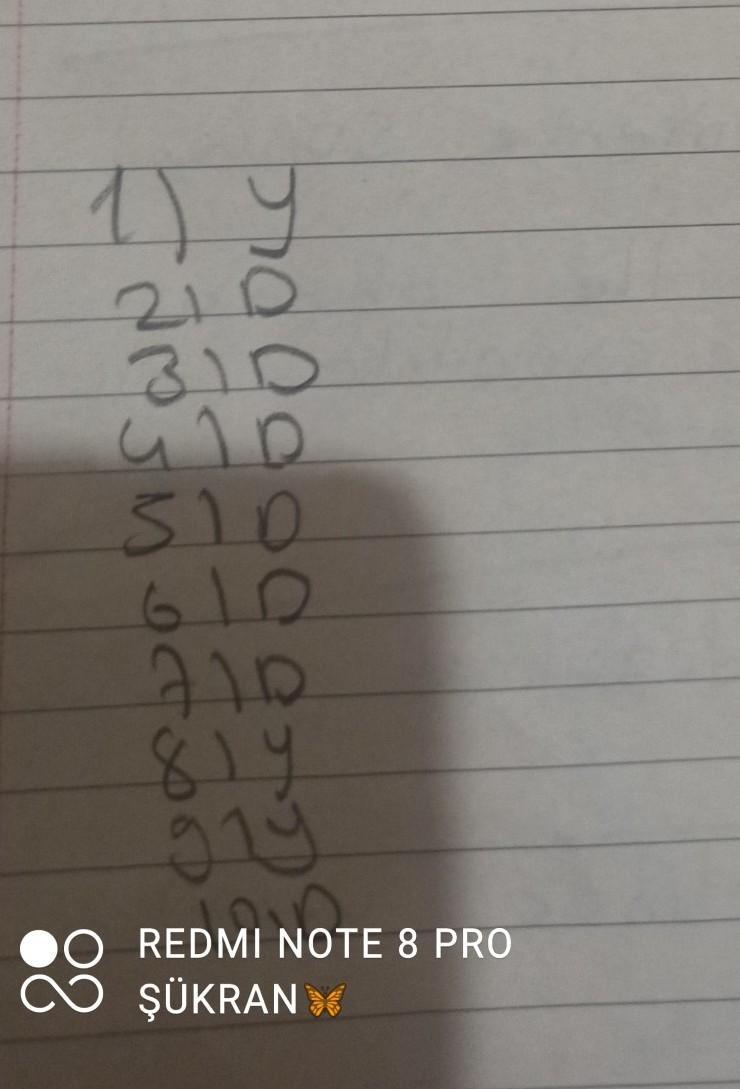 1) y
2) D
3) D
4) D
5) D
6) D
7) D
8) y
9) y
10) D
REDMI NOTE 8 PRO
ŞÜKRAN🦋